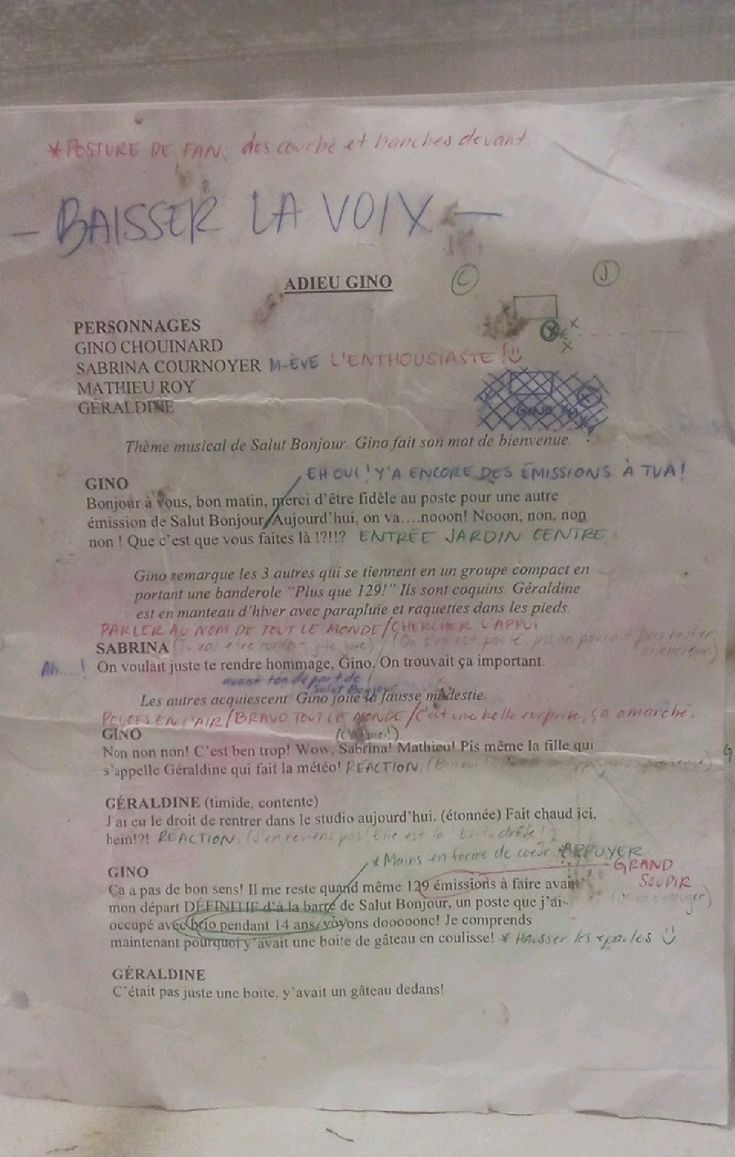 * POSTURE DE FAN, dos courbé et hanches devant.
— BAISSER LA VOIX —
ADIEU GINO
C
J
PERSONNAGES
GINO CHOUINARD
SABRINA COURNOYER M-ÈVE L'ENTHOUSIASTE!
MATHIEU ROY
GÉRALDINE
Thème musical de Salut Bonjour. Gino fait son mot de bienvenue.
EH OUI! Y'A ENCORE DES ÉMISSIONS À TVA!
GINO
Bonjour à vous, bon matin, merci d'être fidèle au poste pour une autre
émission de Salut Bonjour. Aujourd'hui, on va….nooon! Nooon, non, non
non ! Que c'est que vous faites là !?!!? ENTRÉE JARDIN CENTRE
Gino remarque les 3 autres qui se tiennent en un groupe compact en
portant une banderole "Plus que 129!" Ils sont coquins. Géraldine
est en manteau d'hiver avec parapluie et raquettes dans les pieds.
PARLER AU NOM DE TOUT LE MONDE/CHERCHER L'APPUI
SABRINA
Ah...! On voulait juste te rendre hommage, Gino. On trouvait ça important.
avant ton départ de Salut Bonjour
Les autres acquiescent. Gino joue la fausse modestie.
POUCES EN L'AIR/BRAVO TOUT LE MONDE/C'est une belle surprise, ça a marché.
GINO
Non non non! C'est ben trop! Wow, Sabrina! Mathieu! Pis même la fille qui
s'appelle Géraldine qui fait la météo! RÉACTION:
GÉRALDINE (timide, contente)
J'ai eu le droit de rentrer dans le studio aujourd'hui. (étonnée) Fait chaud ici,
hein!?! RÉACTION: (J'en reviens pas! Elle est là! Es-tu drôle!)
* Mains en forme de coeur APPUYER
GINO GRAND SOUPIR
Ça a pas de bon sens! Il me reste quand même 129 émissions à faire avant
mon départ DÉFINITIF d'à la barre de Salut Bonjour, un poste que j'ai
occupé avec brio pendant 14 ans, voyons dooooonc! Je comprends
maintenant pourquoi y'avait une boite de gâteau en coulisse! * HAUSSER les épaules
GÉRALDINE
C'était pas juste une boite, y'avait un gâteau dedans!